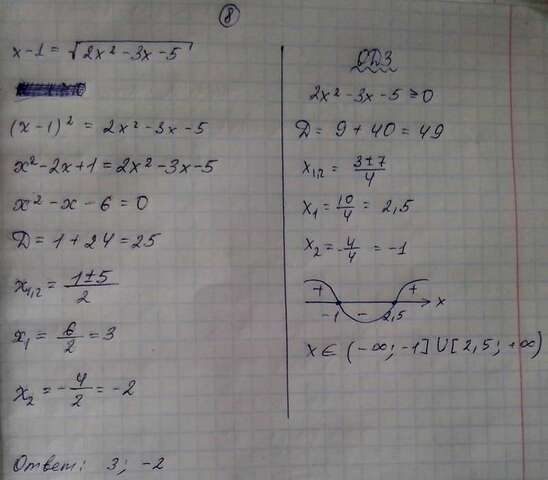 8
x-1 = √(2x² - 3x - 5)
(x-1)² = 2x² - 3x - 5
x² - 2x + 1 = 2x² - 3x - 5
x² - x - 6 = 0
D = 1 + 24 = 25
x₁,₂ = (1±5)/2
x₁ = 6/2 = 3
x₂ = -4/2 = -2
Ответ: 3; -2
ОДЗ
2x² - 3x - 5 ≥ 0
D = 9 + 40 = 49
x₁,₂ = (3±7)/4
x₁ = 10/4 = 2,5
x₂ = -4/4 = -1
+ - + x
-1 2,5
x ∈ (-∞; -1] ∪ [2,5; +∞)